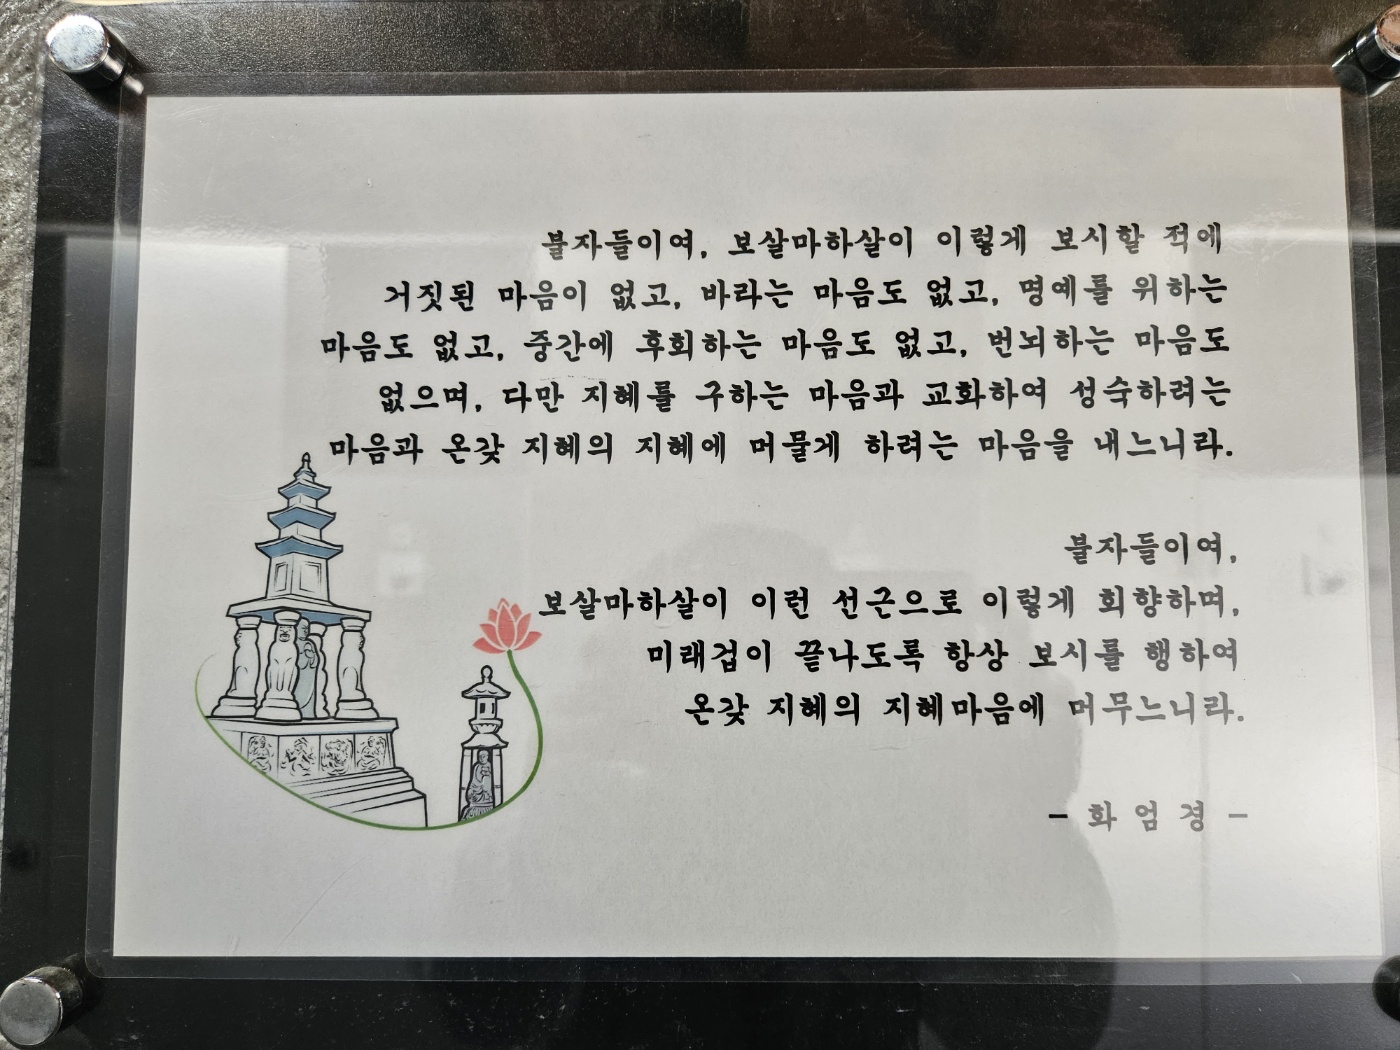 불자들이여, 보살마하살이 이렇게 보시할 적에
거짓된 마음이 없고, 바라는 마음도 없고, 명예를 위하는
마음도 없고, 중간에 후회하는 마음도 없고, 번뇌하는 마음도
없으며, 다만 지혜를 구하는 마음과 교화하여 성숙하려는
마음과 온갖 지혜의 지혜에 머물게 하려는 마음을 내느니라.
불자들이여,
보살마하살이 이런 선근으로 이렇게 회향하며,
미래겁이 끝나도록 항상 보시를 행하여
온갖 지혜의 지혜마음에 머무느니라.
- 화 엄 경 -